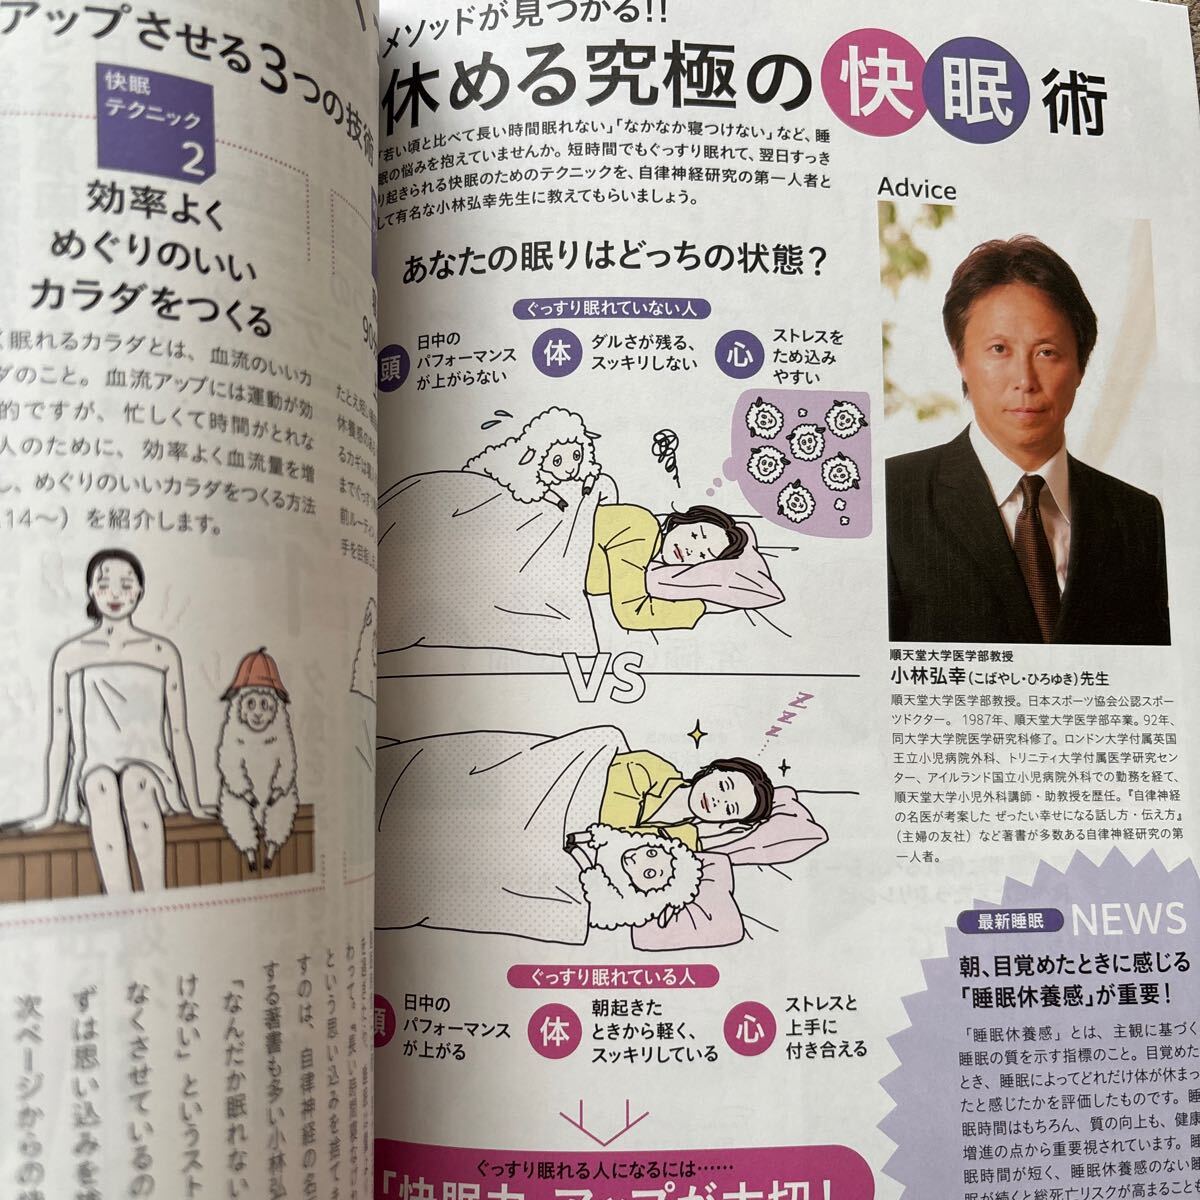 アップさせる3つの技術
快眠
テクニック
2
効率よく
めぐりのいい
カラダをつくる
く眠れるカラダとは、血流のいいカ
ダのこと。血流アップには運動が効
的ですが、忙しくて時間がとれな
人のために、効率よく血流量を増
し、めぐりのいいカラダをつくる方法
14〜）を紹介します。
メソッドが見つかる!!
休める究極の快眠術
「若い頃と比べて長い時間眠れない」「なかなか寝つけない」など、睡
眠の悩みを抱えていませんか。短時間でもぐっすり眠れて、翌日すっき
り起きられる快眠のためのテクニックを、自律神経研究の第一人者と
して有名な小林弘幸先生に教えてもらいましょう。
あなたの眠りはどっちの状態？
ぐっすり眠れていない人
頭
日中の
パフォーマンス
が上がらない
体
ダルさが残る、
スッキリしない
心
ストレスを
ため込み
やすい
VS
zzz
ぐっすり眠れている人
頭
日中の
パフォーマンス
が上がる
体
朝起きた
ときから軽く、
スッキリしている
心
ストレスと
上手に
付き合える
ぐっすり眠れる人になるには……
「快眠力」アップが大切！
Advice
順天堂大学医学部教授
小林弘幸（こばやし・ひろゆき）先生
順天堂大学医学部教授。日本スポーツ協会公認スポー
ツドクター。1987年、順天堂大学医学部卒業。92年、
同大学大学院医学研究科修了。ロンドン大学付属英国
王立小児病院外科、トリニティ大学付属医学研究セン
ター、アイルランド国立小児病院外科での勤務を経て、
順天堂大学小児外科講師・助教授を歴任。『自律神経
の名医が考案した ぜったい幸せになる話し方・伝え方』
（主婦の友社）など著書が多数ある自律神経研究の第
一人者。
最新睡眠 NEWS
朝、目覚めたときに感じる
「睡眠休養感」が重要！
「睡眠休養感」とは、主観に基づく
睡眠の質を示す指標のこと。目覚めた
とき、睡眠によってどれだけ体が休まっ
たと感じたかを評価したものです。睡
眠時間はもちろん、質の向上も、健康
増進の点から重要視されています。睡
眠時間が短く、睡眠休養感のない睡
眠が続くと総死亡リスクが高まること
という思い込みを捨て
すのは、自律神経の名
する著書も多い小林弘
「なんだか眠れない
けない」というスト
なくさせているの
ずは思い込みを
次ページからの